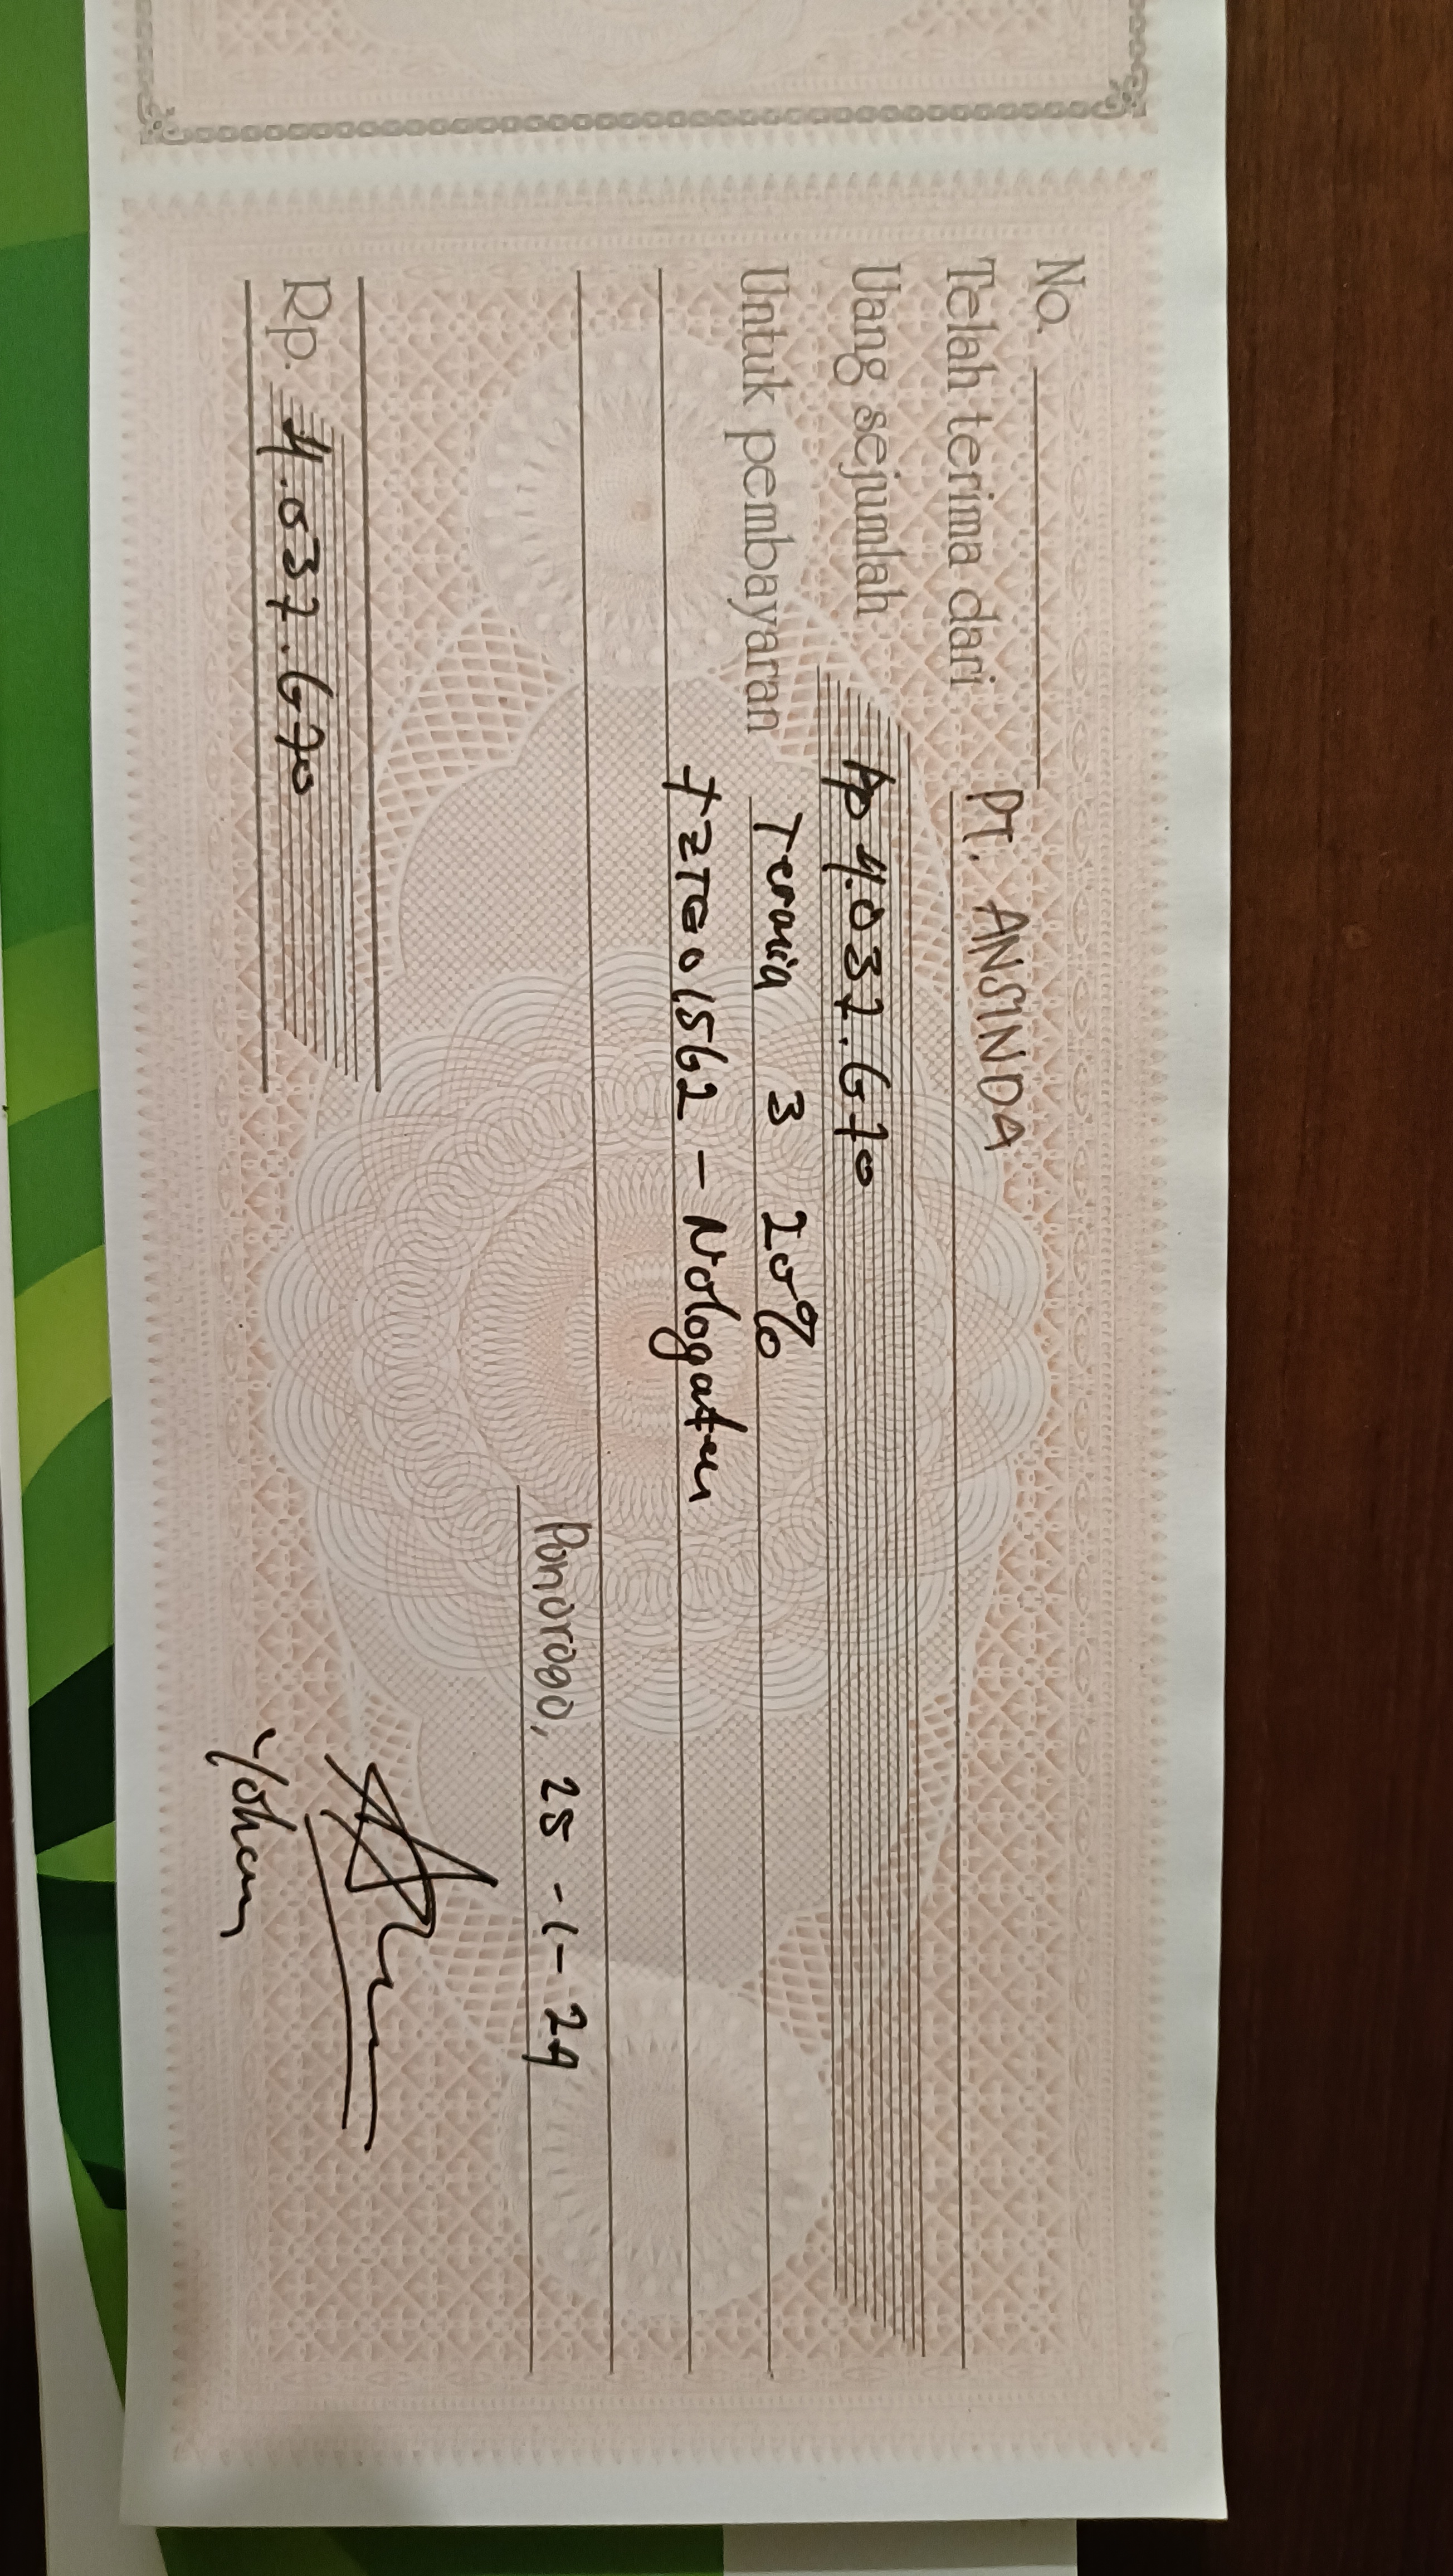 No.
Telah terima dari PT. ANSINDA
Uang sejumlah Rp 4.037.670
Untuk pembayaran Termin 3 20%
TZTG01562 - Nologaten
Ponorogo, 25 -1- 24
Rp. 4.037.670
Yohan